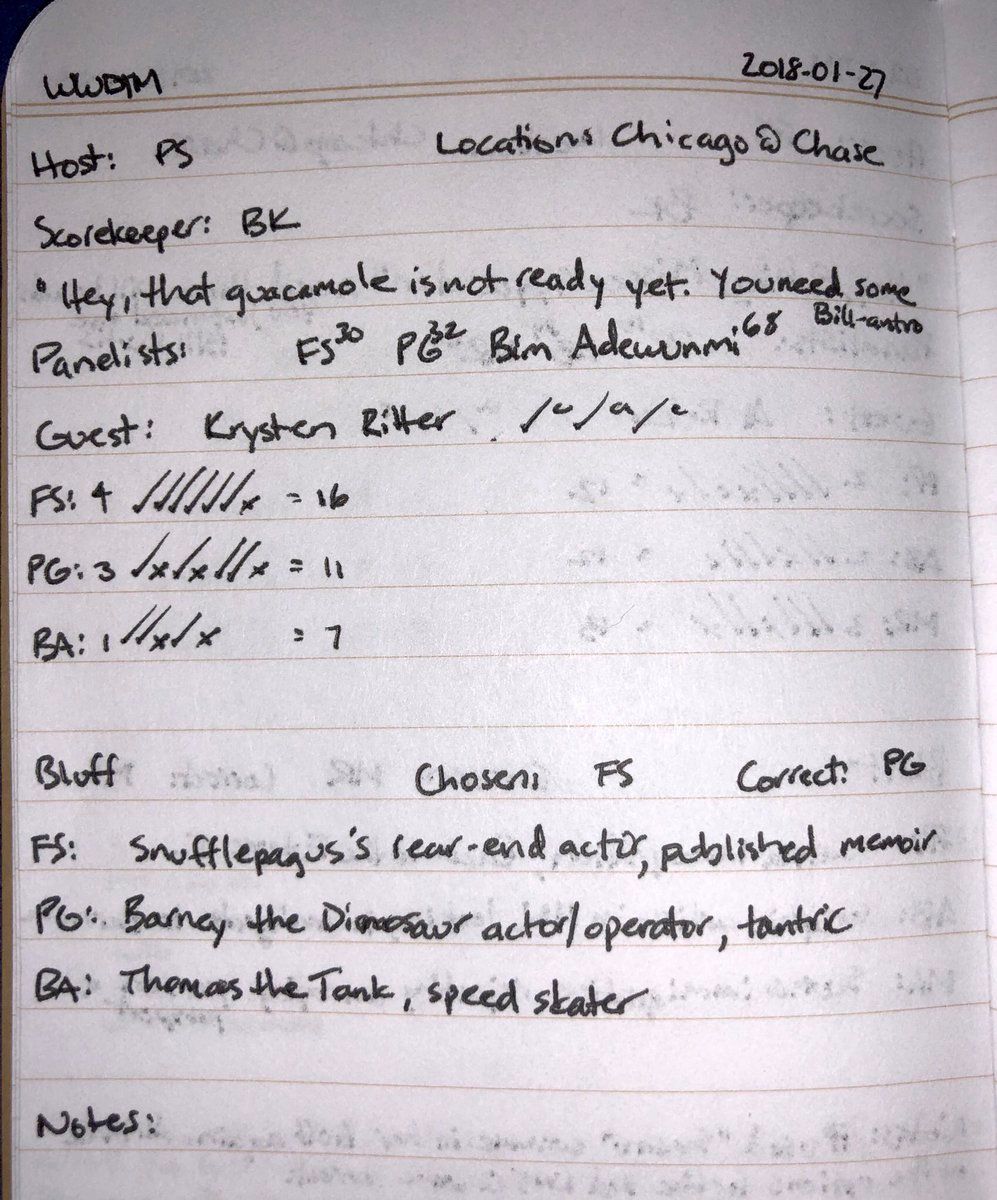 WWDTM 2018-01-27
Host: PS Location: Chicago @ Chase
Scorekeeper: BK
"Hey, that guacamole is not ready yet. You need some Bill-antro
Panelists: FS30 PG32 Bim Adewunmi68
Guest: Krysten Ritter
FS: 4 //////x = 16
PG: 3 /x/x//x = 11
BA: 1 //x/x = 7
Bluff Chosen: FS Correct: PG
FS: Snufflepagus's rear-end actor, published memoir
PG: Barney the Dinosaur actor/operator, tantric
BA: Thomas the Tank, speed skater
Notes: